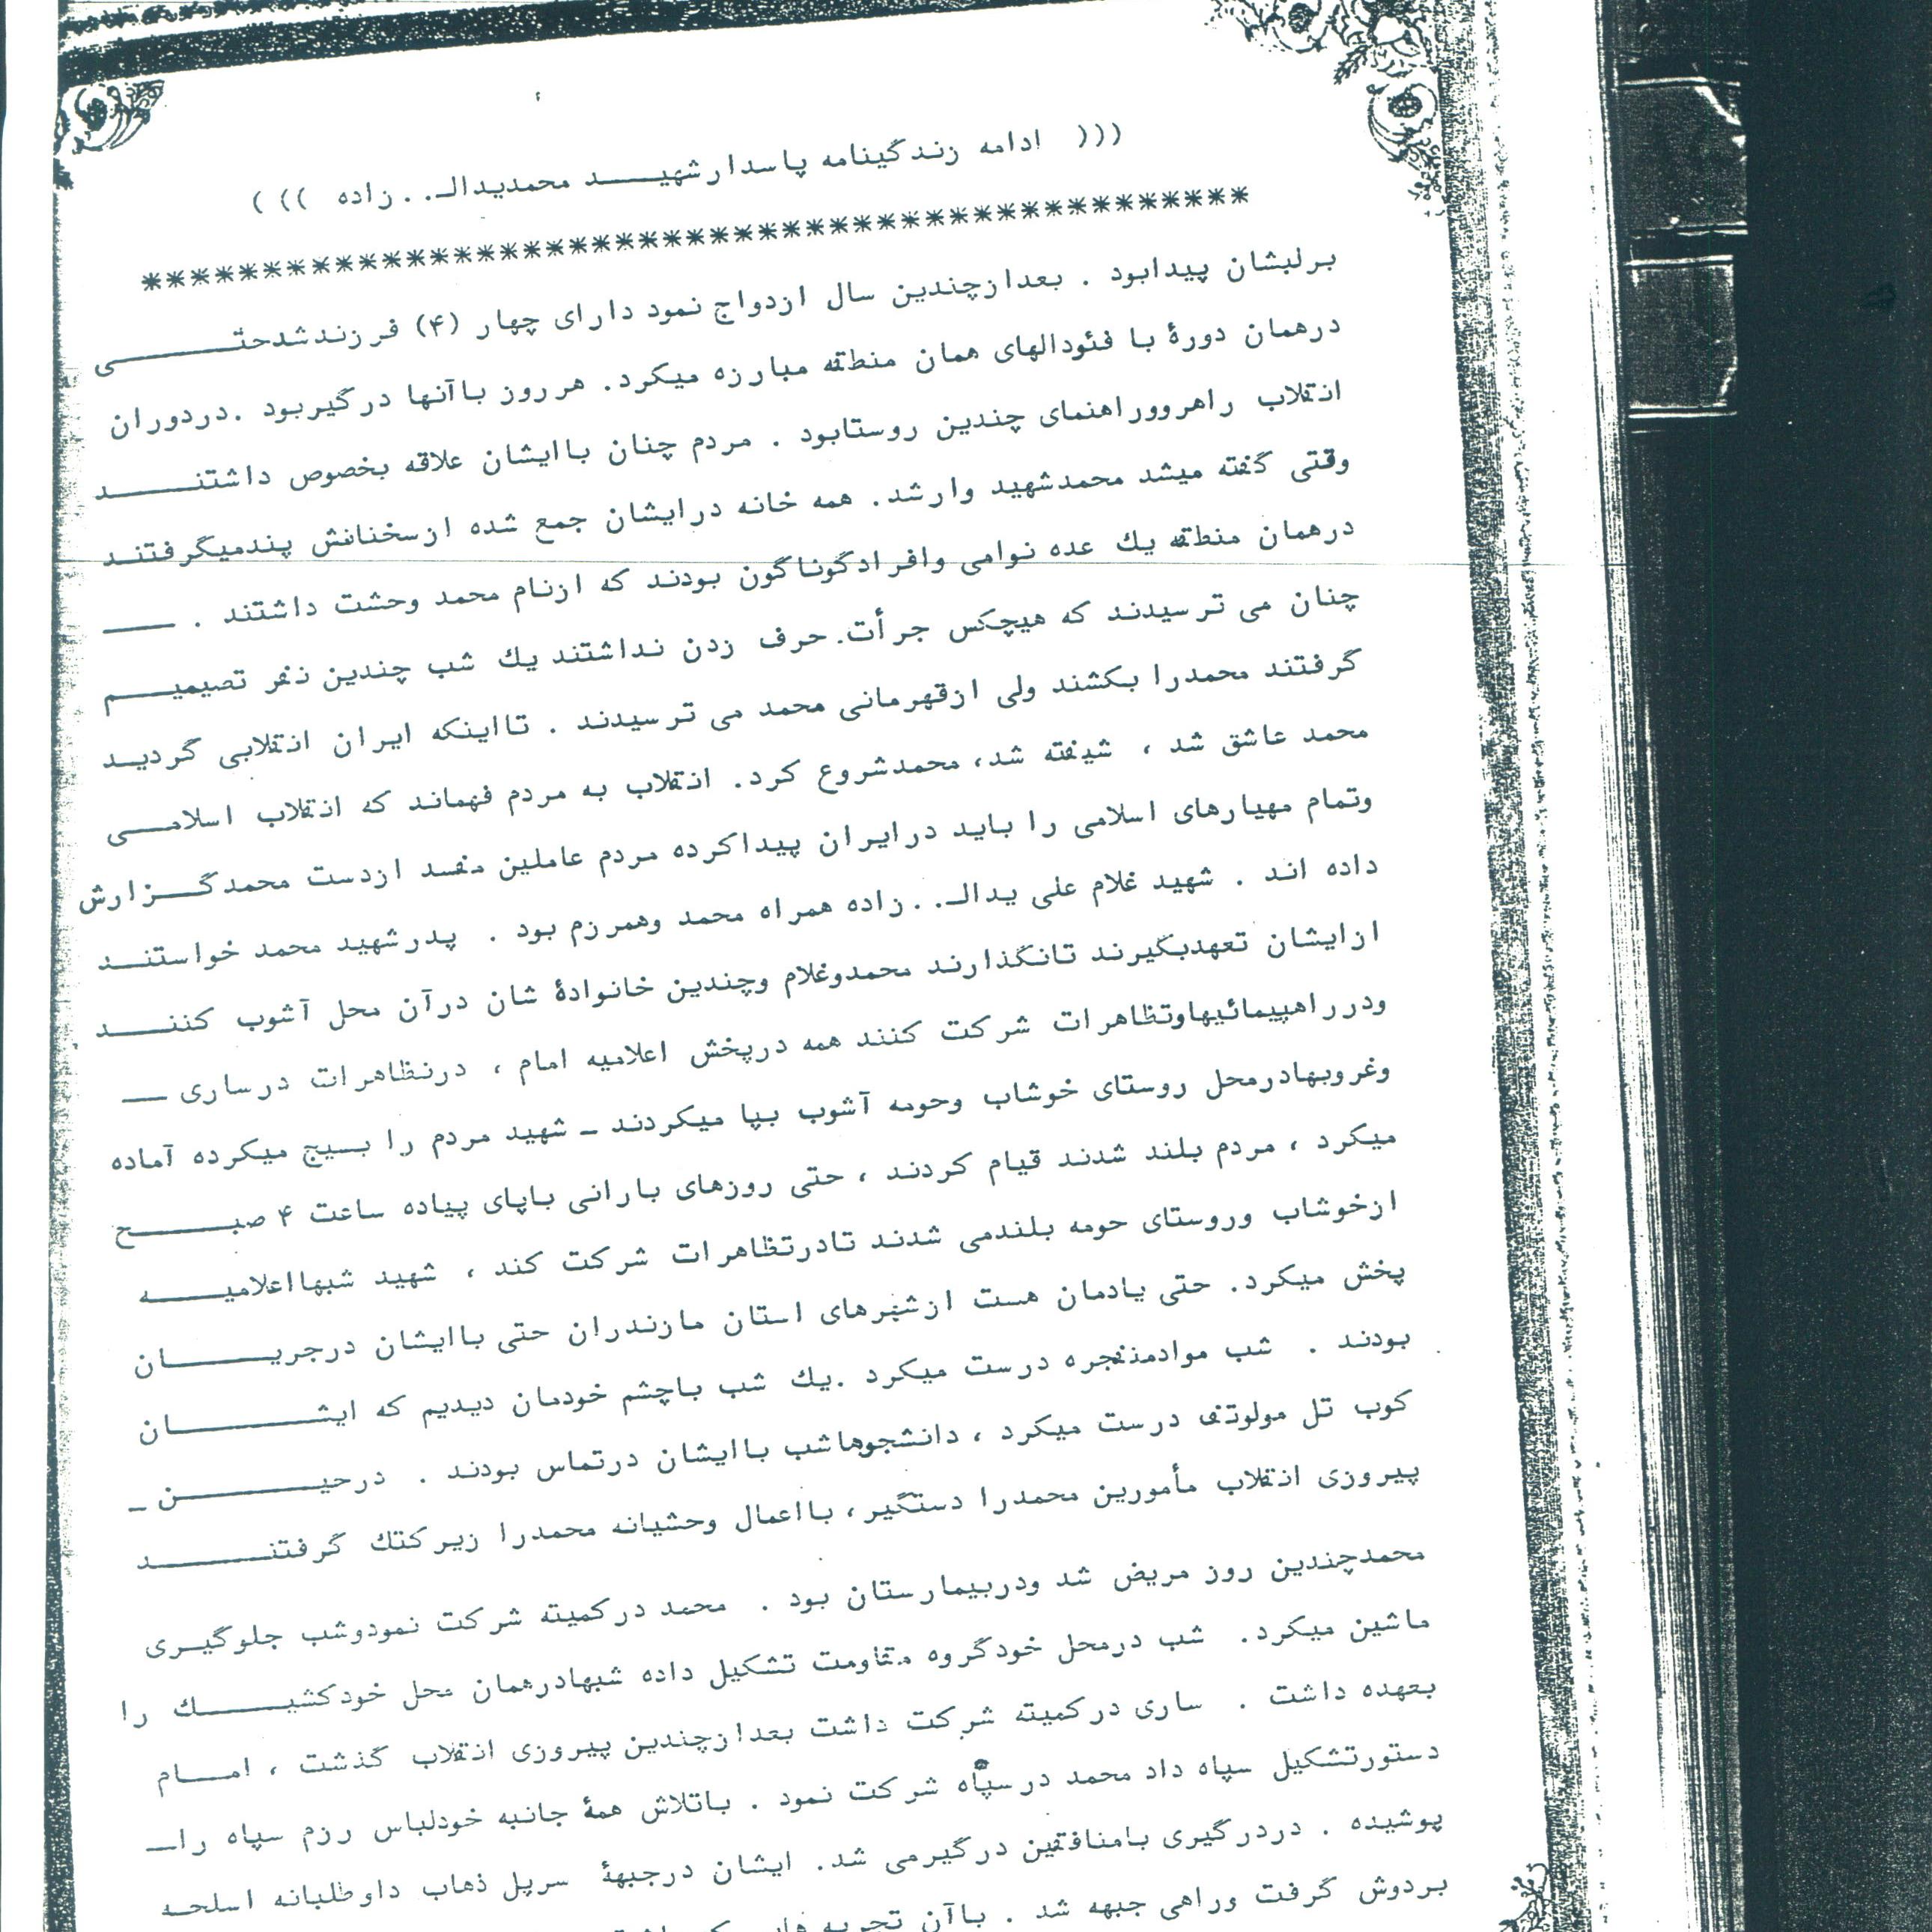 ((( ادامه زندگینامه پاسدار شهیـــد محمدیدالـ..زاده )))
************************************************
برلبشان پیدابود . بعدازچندین سال ازدواج نمود دارای چهار (۴) فرزندشدحتـــــی
درهمان دورهٔ با فئودالهای همان منطقه مبارزه میکرد. هرروز باآنها درگیربود .دردوران
انقلاب راهروو‌راهنمای چندین روستابود . مردم چنان باایشان علاقه بخصوص داشتنــــد
وقتی گفته میشد محمدشهید وارشد. همه خانه درایشان جمع شده ازسخنانش پندمیگرفتنـد
درهمان منطقه یك عده نوامی وافرادگوناگون بودند که ازنام محمد وحشت داشتند . ــــ
چنان می ترسیدند که هیچکس جرأت.حرف زدن نداشتند یك شب چندین نفر تصیمیـــم
گرفتند محمدرا بکشند ولی ازقهرمانی محمد می ترسیدند . تااینکه ایران انقلابی گردیـد
محمد عاشق شد ، شیفته شد، محمدشروع کرد. انقلاب به مردم فهماند که انقلاب اسلامــی
وتمام مهیارهای اسلامی را باید درایران پیداکرده مردم عاملین مفسد ازدست محمدگــزارش
داده اند . شهید غلام علی یدالـ..زاده همراه محمد وهمرزم بود . پدرشهید محمد خواستنــد
ازایشان تعهدبگیرند تانگذارند محمدوغلام وچندین خانوادهٔ شان درآن محل آشوب کننـــد
ودرراهپیمائیهاوتظاهرات شرکت کنند همه درپخش اعلامیه امام ، درنظاهرات درساری ــ
وغروبهادرمحل روستای خوشاب وحومه آشوب بپا میکردند ـ شهید مردم را بسیج میکرده آماده
میکرد ، مردم بلند شدند قیام کردند ، حتی روزهای بارانی باپای پیاده ساعت ۴ صبـــــح
ازخوشاب وروستای حومه بلندمی شدند تادرتظاهرات شرکت کند ، شهید شبهااعلامیــــه
پخش میکرد. حتی یادمان هست ازشهرهای استان مازندران حتی باایشان درجریـــــان
بودند . شب موادمنفجره درست میکرد .یك شب باچشم خودمان دیدیم که ایشـــــــان
کوب تل مولوتف درست میکرد ، دانشجوهاشب باایشان درتماس بودند . درحیـــــــن ـ
پیروزی انقلاب مأمورین محمدرا دستگیر، بااعمال وحشیانه محمدرا زیرکتك گرفتنـــــــد
محمدچندین روز مریض شد ودربیمارستان بود . محمد درکمیته شرکت نمودوشب جلوگیـری
ماشین میکرد. شب درمحل خودگروه مقاومت تشکیل داده شبهادرهمان محل خودکشیـــــك را
بعهده داشت . ساری درکمیته شرکت داشت بعدازچندین پیروزی انقلاب گذشت ، امــام
دستورتشکیل سپاه داد محمد درسپاه شرکت نمود . باتلاش همهٔ جانبه خودلباس رزم سپاه راــ
پوشیده . دردرگیری بامنافقین درگیرمی شد. ایشان درجبههٔ سرپل ذهاب داوطلبانه اسلحـه
بردوش گرفت وراهی جبهه شد . باآن تجربه